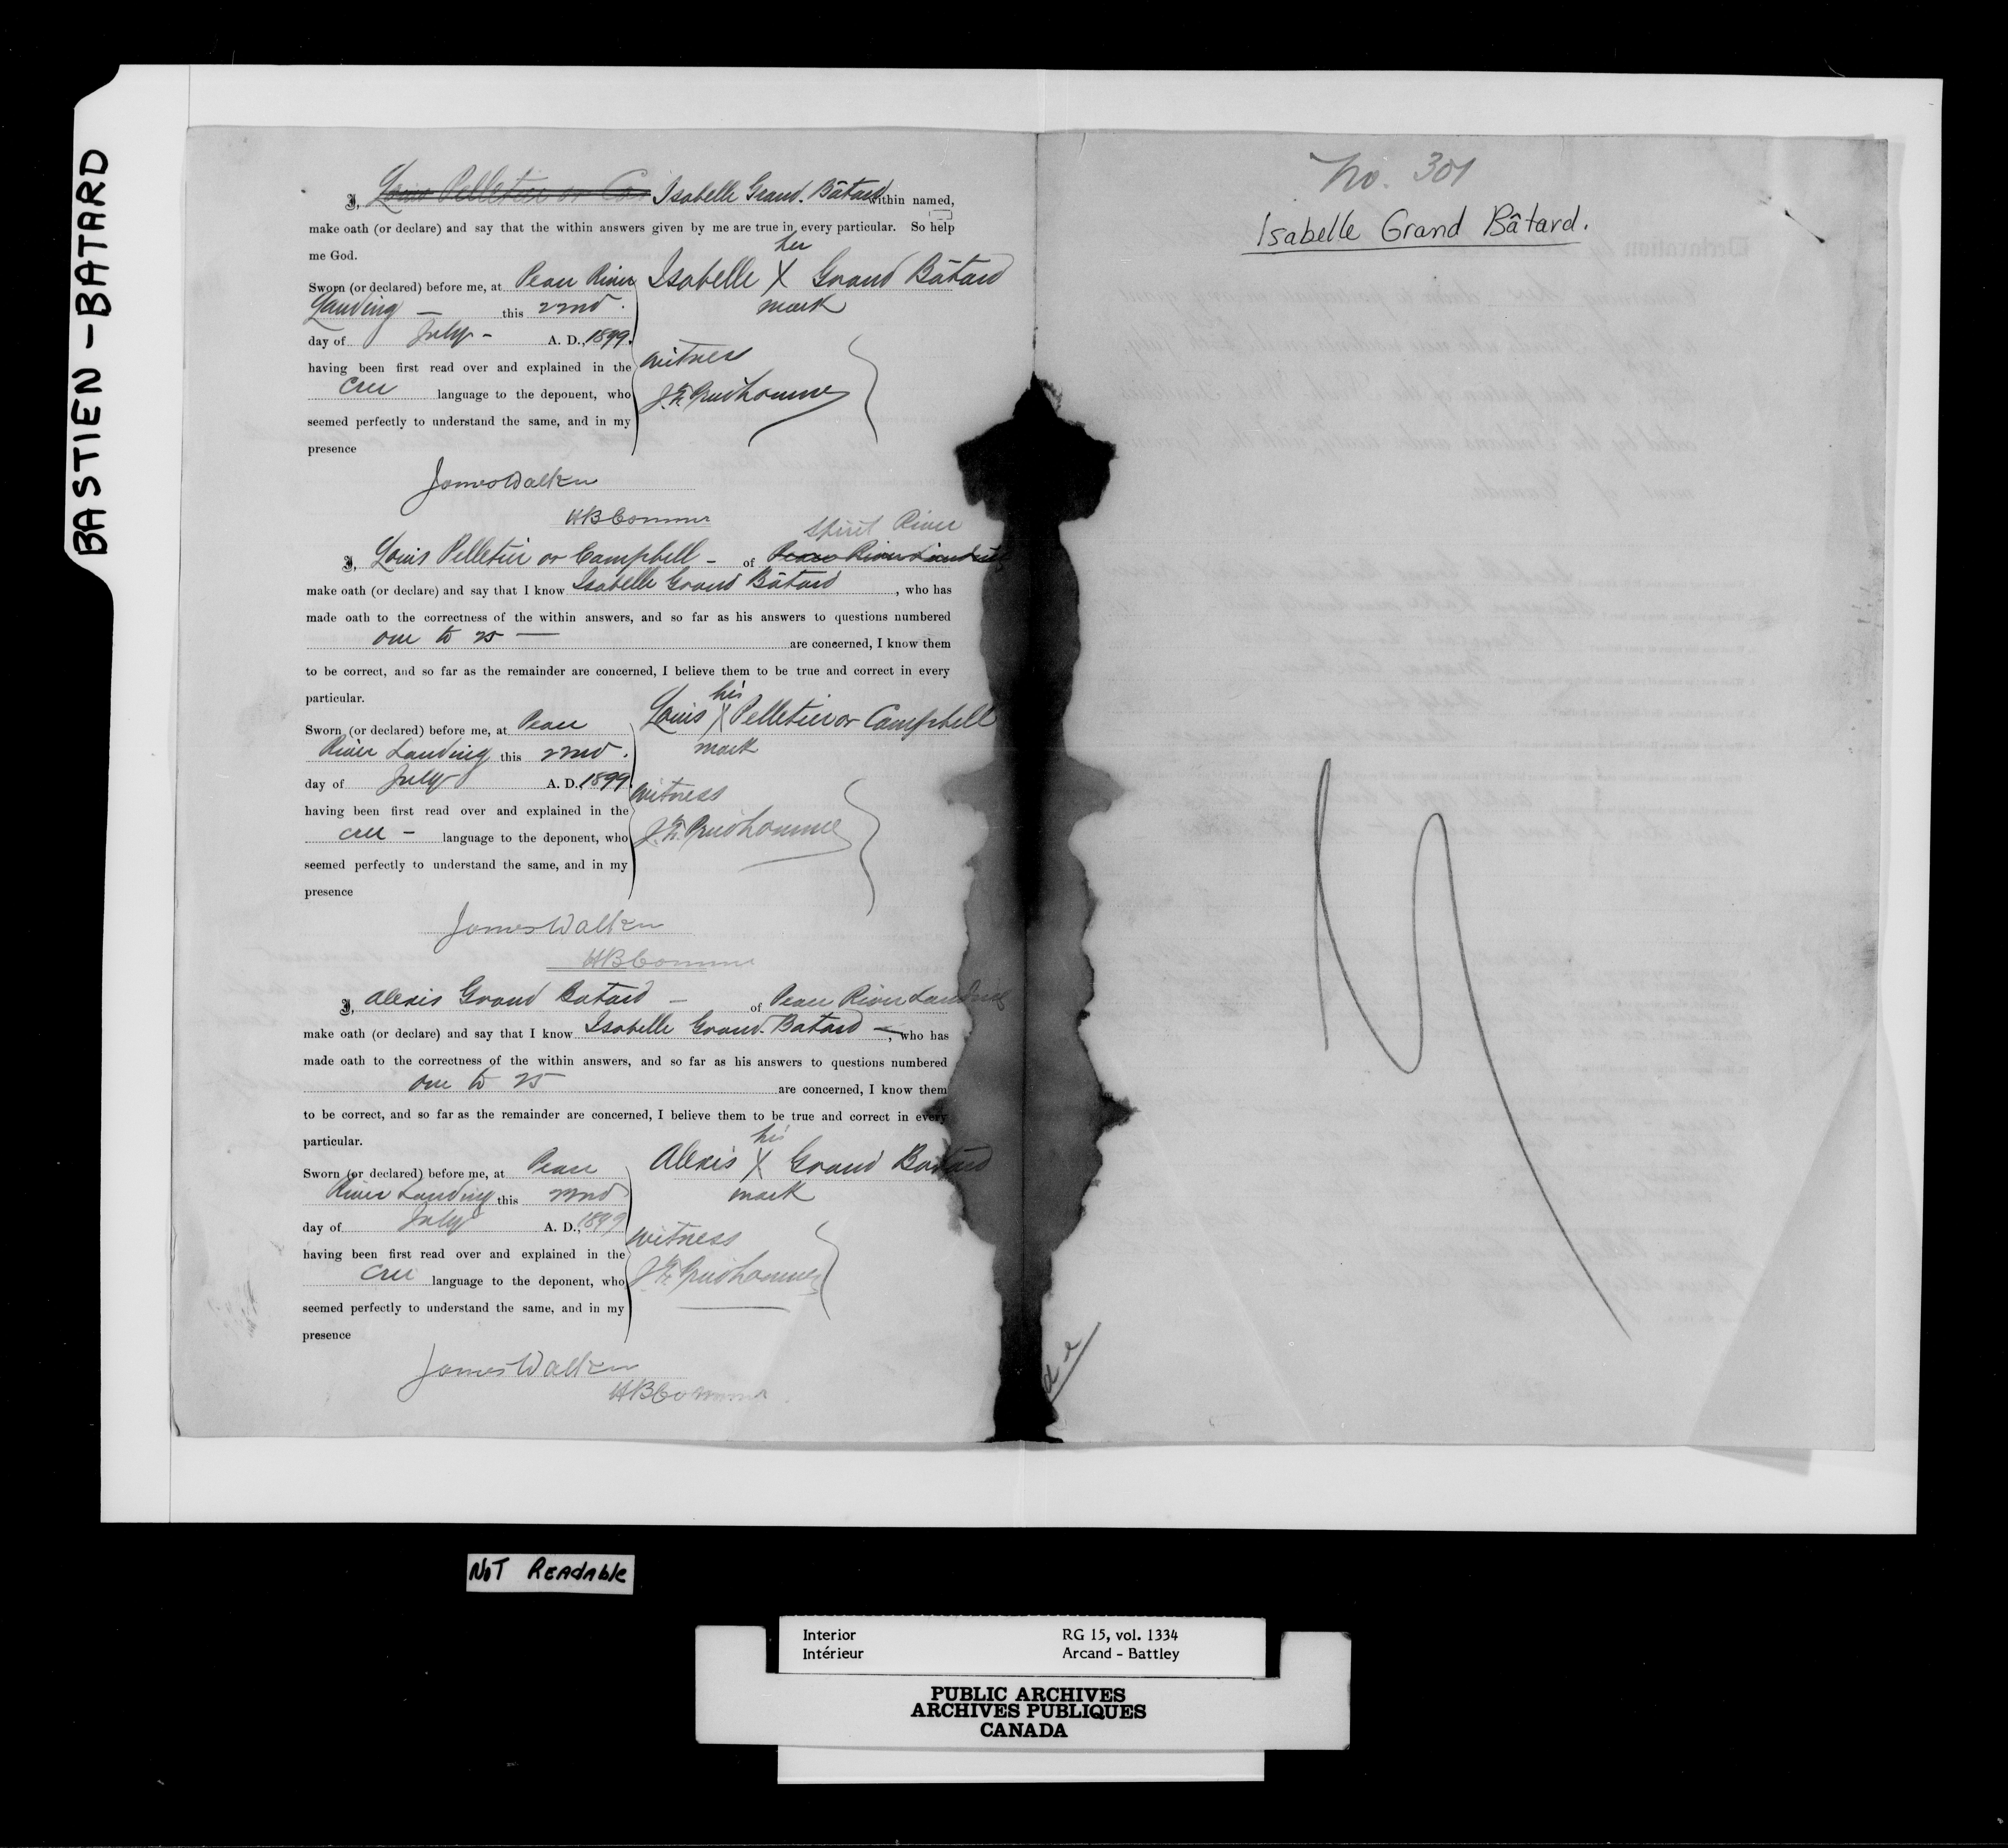 BASTIEN - BATARD
I, Louis Pelletier or Ca Isabelle Grand. Bâtard within named,
make oath (or declare) and say that the within answers given by me are true in every particular. So help
me God.
her
Sworn (or declared) before me, at Peace River Isabelle X Grand Bâtard
Landing — this 22nd. mark
day of July - A. D., 1899.
witness
having been first read over and explained in the
cree language to the deponent, who
J. Prudhomme
seemed perfectly to understand the same, and in my
presence
James Walker
HB Commr
Spirit River
I, Louis Pelletier or Campbell - of Peace River Landing
make oath (or declare) and say that I know Isabelle Grand Bâtard, who has
made oath to the correctness of the within answers, and so far as his answers to questions numbered
one to 25 — are concerned, I know them
to be correct, and so far as the remainder are concerned, I believe them to be true and correct in every
particular.
his
Sworn (or declared) before me, at Peace Louis X Pelletier or Campbell
River Landing this 22nd. mark
day of July A. D. 1899.
witness
having been first read over and explained in the
cree - language to the deponent, who J. Prudhomme
seemed perfectly to understand the same, and in my
presence
James Walker
HB Commr
I, Alexis Grand Batard - of Peace River Landing
make oath (or declare) and say that I know Isabelle Grand. Batard —, who has
made oath to the correctness of the within answers, and so far as his answers to questions numbered
one to 25 are concerned, I know them
to be correct, and so far as the remainder are concerned, I believe them to be true and correct in every
particular.
his
Sworn (or declared) before me, at Peace Alexis X Grand Batard
River Landing this 22nd mark
day of July A. D., 1899
witness
having been first read over and explained in the
cree language to the deponent, who J. Prudhomme
seemed perfectly to understand the same, and in my
presence
James Walker
HB Commr
No. 301
Isabelle Grand Bâtard.
NOT READABLE
Interior RG 15, vol. 1334
Intérieur Arcand - Battley
PUBLIC ARCHIVES
ARCHIVES PUBLIQUES
CANADA